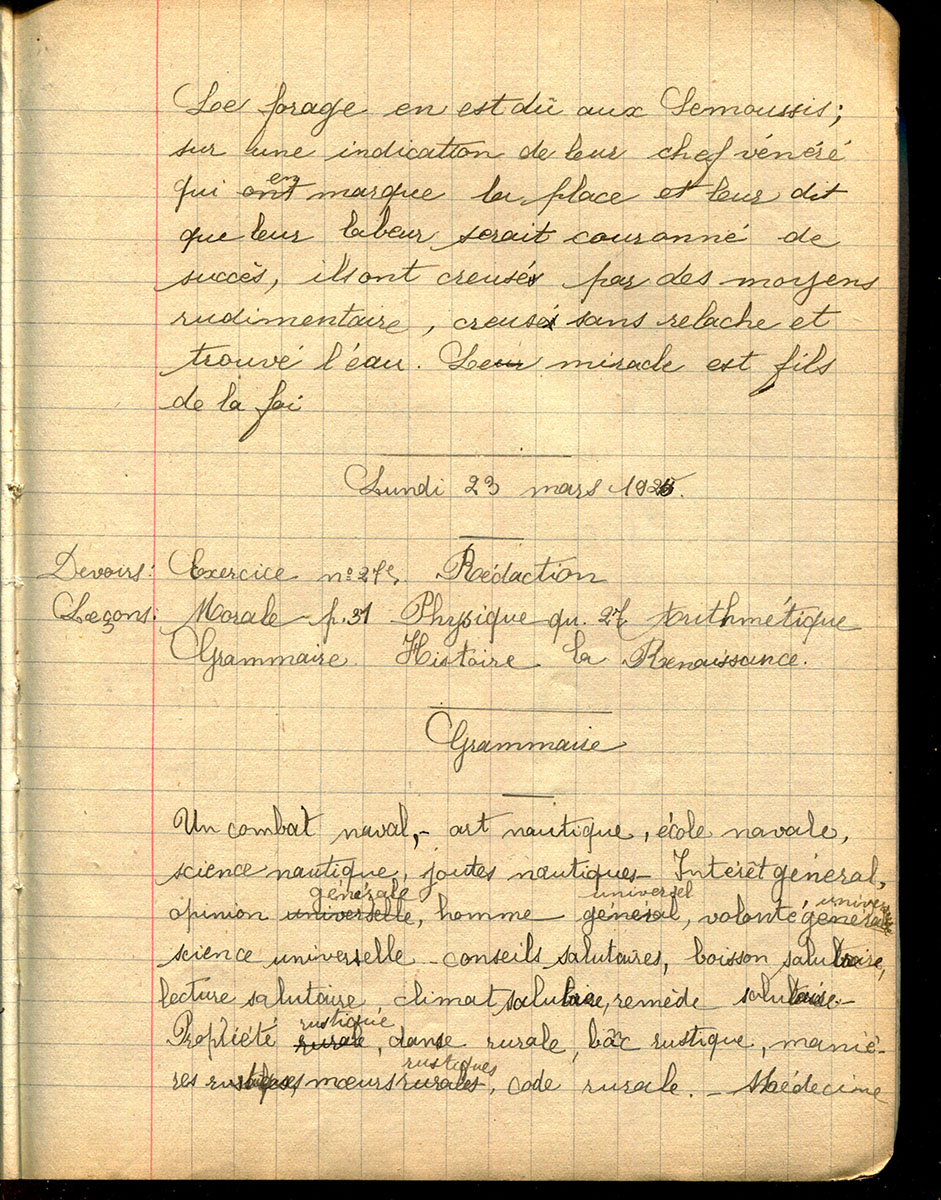 Le forage en est dû aux Senoussis;
sur une indication de leur chef vénéré
en
qui ont marque la place et leur dit
que leur labeur serait couronné de
succès, ils ont creusés par des moyens
rudimentaire, creusé sans relache et
trouvé l'eau. Leur miracle est fils
de la foi
Lundi 23 mars 1925.
Devoirs: Exercice n° 27 Rédaction
Leçons: Morale p. 31 Physique qu. 27 Arithmétique
Grammaire. Histoire la Renaissance.
Grammaire
Un combat naval, - art nautique, école navale,
science nautique, joutes nautiques - Intérêt général,
générale universel
opinion universelle, homme général, volonté générale
science universelle - conseils salutaires, boisson salutaire,
lecture salutaire, climat salutaire, remède salutaire -
rustique
Propriété rurale, danse rurale, bac rustique, maniè-
rustiques
res rustiques, mœurs rurales, code rurale. - Médecine